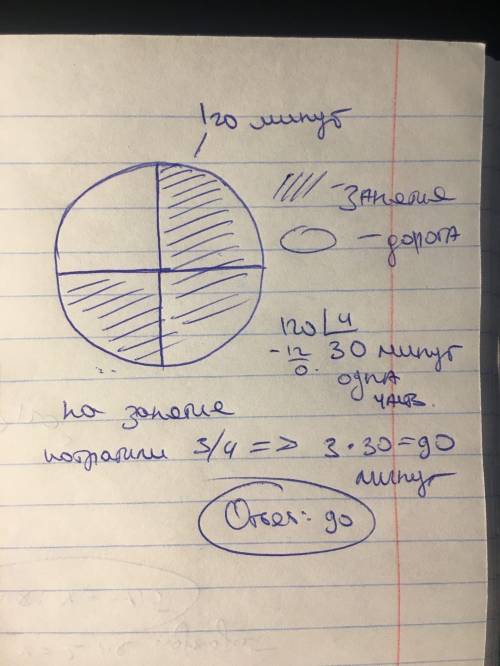 120 минут
- занятия
- дорога
120 | 4
- 12 30 минут
0 одна
часть
на занятие
потратили 3/4 => 3 · 30 = 90
минут
Ответ: 90